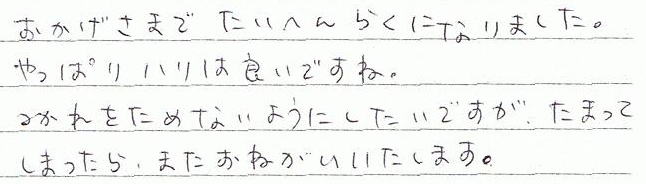 おかげさまで たいへんらくになりました。
やっぱりハリは良いですね。
つかれをためないようにしたいですが、たまって
しまったら、またおねがいいたします。